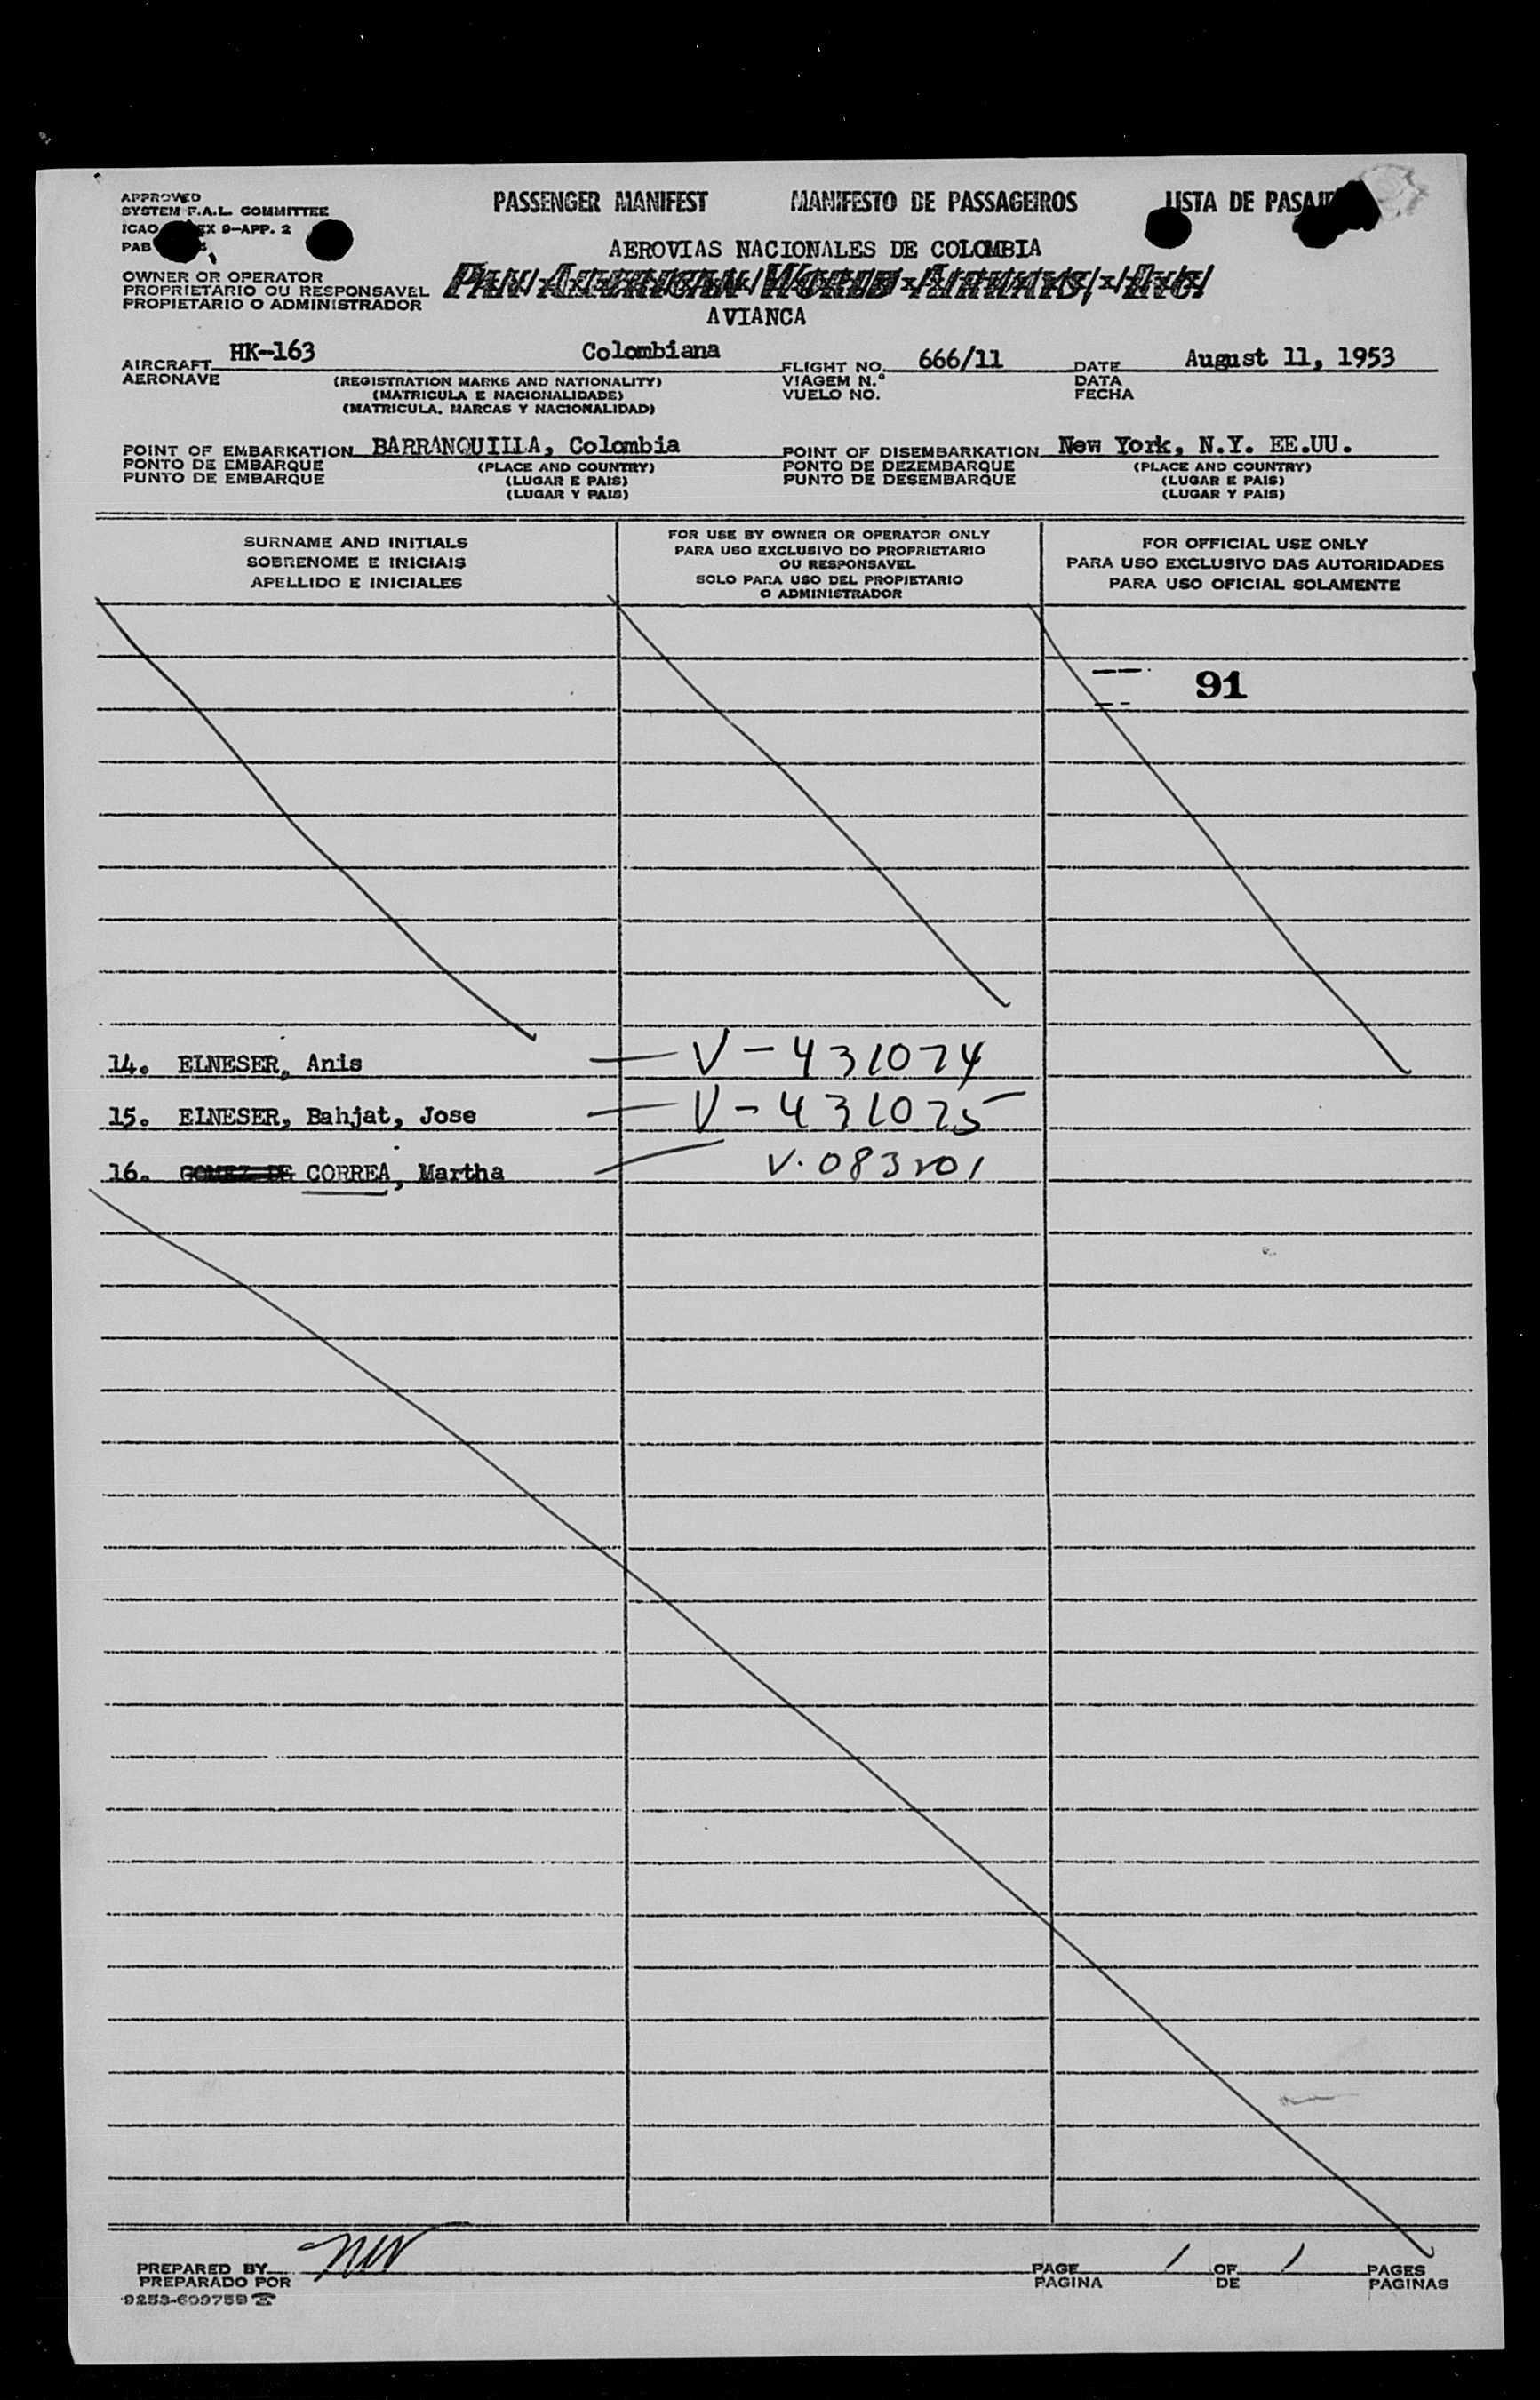 APPROVED
SYSTEM F.A.L. COMMITTEE
ICAO EX 9-APP. 2
PAB
PASSENGER MANIFEST MANIFESTO DE PASSAGEIROS LISTA DE
AEROVIAS NACIONALES DE COLOMBIA
OWNER OR OPERATOR
PROPRIETARIO OU RESPONSAVEL
PROPIETARIO O ADMINISTRADOR
PAN AMERICAN WORLD AIRWAYS, INC.
AVIANCA
AIRCRAFT HK-163 Colombiana
AERONAVE
(REGISTRATION MARKS AND NATIONALITY)
(MATRICULA E NACIONALIDADE)
(MATRICULA, MARCAS Y NACIONALIDAD)
FLIGHT NO. 666/11
VIAGEM N.º
VUELO NO.
DATE August 11, 1953
DATA
FECHA
POINT OF EMBARKATION BARRANQUILLA, Colombia
PONTO DE EMBARQUE
PUNTO DE EMBARQUE
(PLACE AND COUNTRY)
(LUGAR E PAIS)
(LUGAR Y PAIS)
POINT OF DISEMBARKATION New York, N.Y. EE.UU.
PONTO DE DEZEMBARQUE
PUNTO DE DESEMBARQUE
(PLACE AND COUNTRY)
(LUGAR E PAIS)
(LUGAR Y PAIS)
SURNAME AND INITIALS
SOBRENOME E INICIAIS
APELLIDO E INICIALES
FOR USE BY OWNER OR OPERATOR ONLY
PARA USO EXCLUSIVO DO PROPRIETARIO
OU RESPONSAVEL
SOLO PARA USO DEL PROPIETARIO
O ADMINISTRADOR
FOR OFFICIAL USE ONLY
PARA USO EXCLUSIVO DAS AUTORIDADES
PARA USO OFICIAL SOLAMENTE
91
14. ELNESER, Anis — V-431074
15. ELNESER, Bahjat, Jose — V-431075
16. GOMEZ DE CORREA, Martha — V.083201
PREPARED BY
PREPARADO POR
PAGE 1 OF 1 PAGES
PAGINA DE PAGINAS
9253-609759